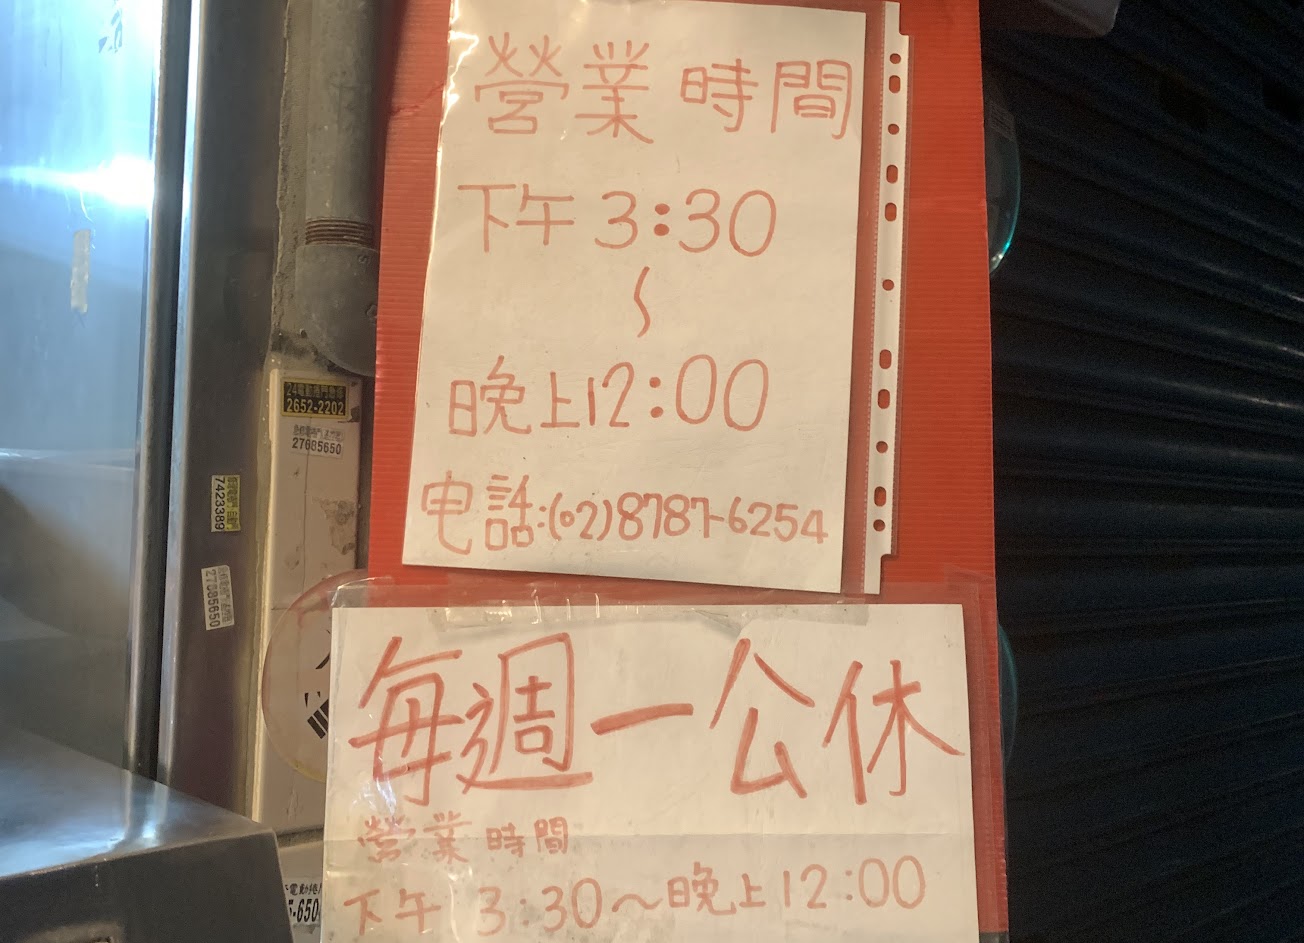 營業時間
下午3:30
~
晚上12:00
电話:(02)8787-6254
每週一公休
營業時間
下午 3:30~晚上12:00
2652-2202
27685650
7423389
27685650